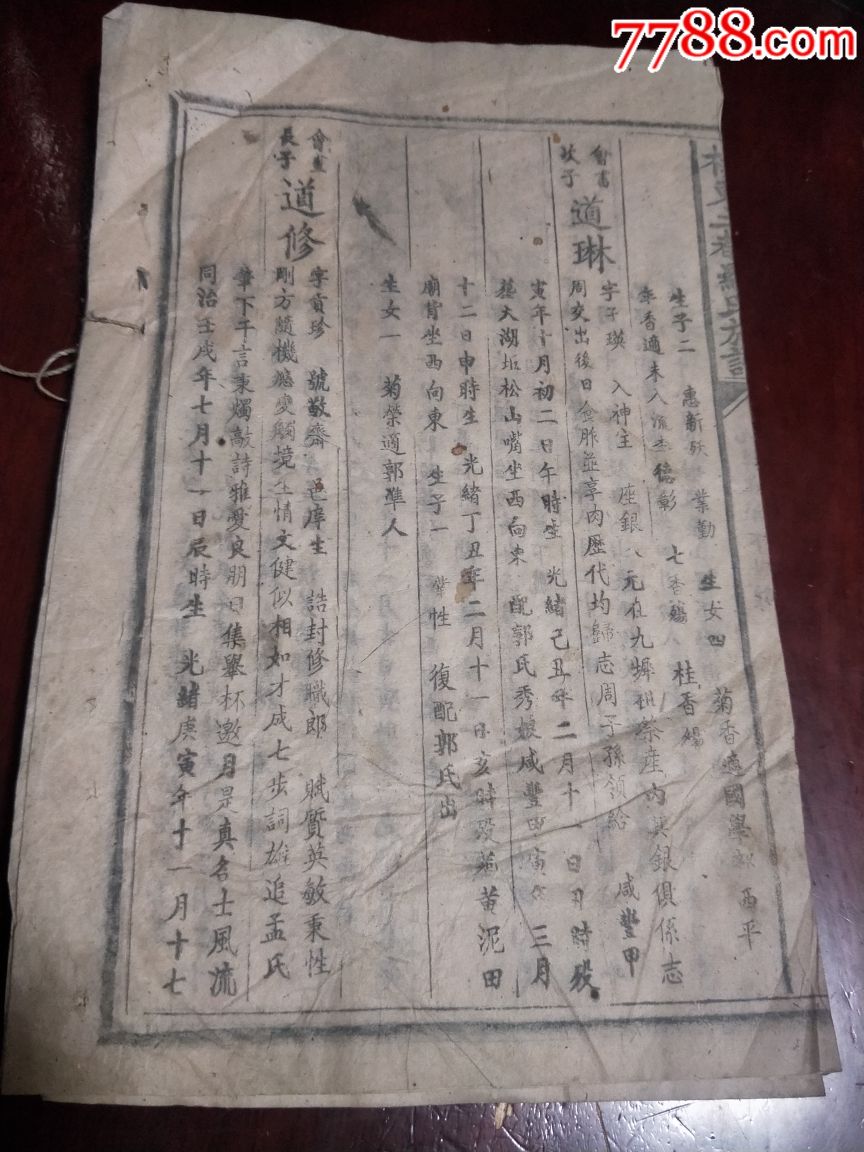 7788.com
氏族譜
生子二 惠新 業勤 生女四 菊香適國學 西平
年香適未入流 德彰 七香殤 桂香殤
會富次子 道琳 字子瑛 入神主 座銀 元在九 祖祭產內其銀俱係志
周交出後日金胙並享肉歷代均歸志周子孫領給 咸豐甲
寅年十月初二日午時生 光緒己丑年二月十一日丑時歿
葬大湖坵松山嘴坐西向東 配郭氏秀娘咸豐甲寅年三月
十二日申時生 光緒丁丑年二月十一日亥時歿葬黃泥田
廟背坐西向東 生子一 性 復配郭氏出
生女一 菊榮適郭隼人
長子 道修 字貢珍 號敬齋 邑庠生 誥封修職郎 賦質英敏秉性
剛方隨機應變觸境生情文健似相如才成七步詞雄追孟氏
筆下千言秉燭敲詩雅愛良朋日集舉杯邀月是真名士風流
同治壬戌年七月十一日辰時生 光緒庚寅年十一月十七